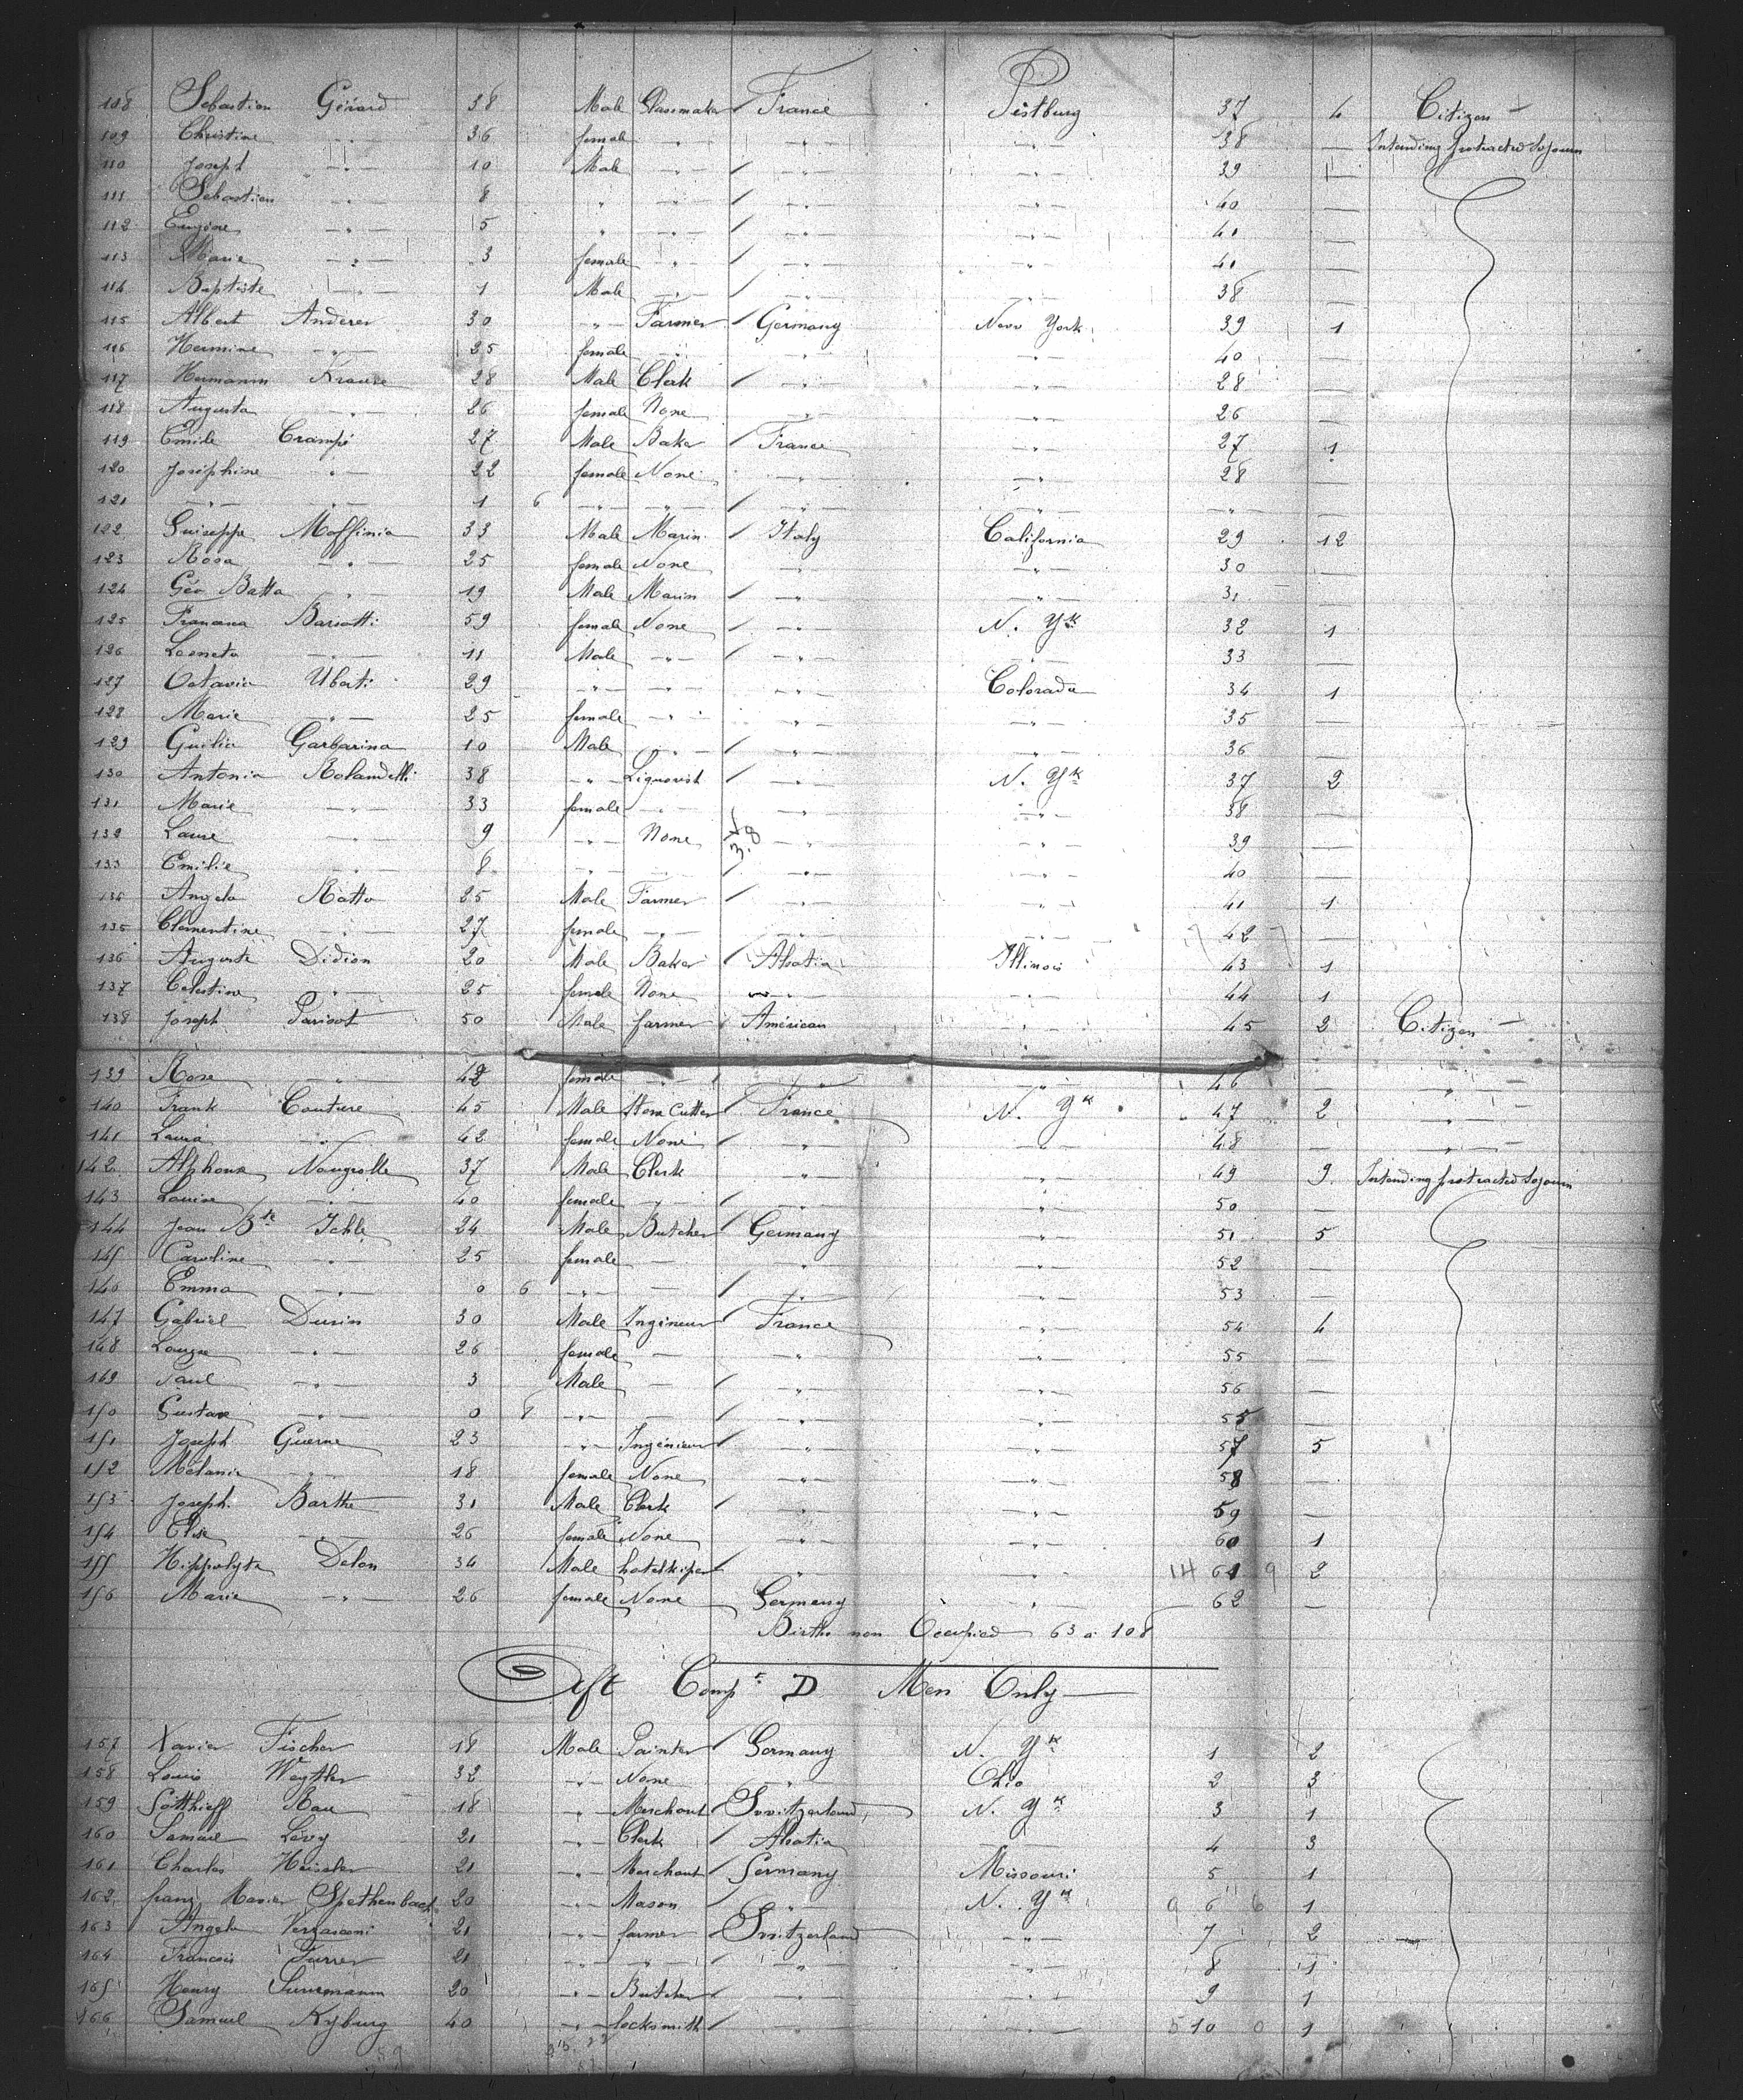 108 Sebastien Gérard 38 Male Glassmaker / France Pistburg 37 4 Citizen —
109 Christine —"— 36 female —"— —"— —"— 38 — Intending protracted Sojourn
110 Joseph —"— 10 Male —"— / —"— —"— 39 —
111 Sebastien —"— 8 " —"— / —"— —"— 40 —
112 Eugène —"— 5 " —"— / —"— —"— 41 —
113 Marie —"— 3 female —"— —"— —"— 41 —
114 Baptiste —"— 1 Male —"— / —"— —"— 38 —
115 Albert Anderer 30 —"— Farmer / Germany New York 39 1
116 Hermine —"— 25 female —"— —"— —"— 40 —
117 Hermann Krause 28 Male Clerk / —"— —"— 28 —
118 Augusta —"— 26 female None —"— —"— 26 —
119 Emile Crampé 27 Male Baker / France —"— 27 1
120 Joséphine —"— 22 female None —"— —"— 28 —
121 —"— —"— 1 6 —"— —"— / —"— —"— —"— —
122 Guiseppe Moffinia 33 Male Marin / Italy California 29 12
123 Rosa —"— 25 female None —"— —"— 30 —
124 Géo Batta —"— 19 Male Marin / —"— —"— 31 —
125 Barsotti 59 female None / —"— N. Yk 32 1
126 11 Male —"— / —"— —"— 33 —
127 Octavia Uberti 29 —"— —"— —"— Colorado 34 1
128 Marie —"— 25 female —"— —"— —"— 35 —
129 Guilia Garbarina 10 Male —"— / —"— —"— 36 —
130 Antonia Rolandelli 38 —"— Liquorist / —"— N. Yk 37 2
131 Marie —"— 33 female —"— —"— —"— 38 —
132 Laure —"— 9 —"— None 38 —"— —"— 39 —
133 Emilie —"— 8 —"— —"— / —"— —"— 40 —
134 Angelo Ratto 25 Male Farmer / —"— —"— 41 1
135 Clementine —"— 27 female —"— —"— —"— 42 —
136 Auguste Didion 20 Male Baker / Alsatia Illinois 43 1
137 Celestine —"— 25 female None —"— —"— 44 1
138 Joseph Parisot 50 Male farmer / Américan —"— 45 2 Citizen —
139 Rose —"— 42 female —"— —"— —"— 46 — —"—
140 Frank Couture 45 Male Stone Cutter / France N. Yk 47 2 —"—
141 Laura —"— 42 female None / —"— —"— 48 — —"—
142 Alphonse Nougrolle 37 Male Clerk —"— —"— 49 9 Intending protracted Sojourn
143 Louise —"— 40 female —"— / —"— —"— 50 —
144 Jean Bte Ichlé 24 Male Butcher / Germany —"— 51 5
145 Caroline —"— 25 female — —"— —"— 52 —
146 Emma —"— 0 6 —"— — / —"— —"— 53 —
147 Gabriel Durin 30 Male Ingénieur / France —"— 54 4
148 —"— 26 female — —"— —"— 55 —
149 Paul —"— 3 Male — / —"— —"— 56 —
150 Gustave —"— 0 8 —"— — / —"— —"— 55 —
151 Joseph Guerne 23 —"— Ingénieur / —"— —"— 57 5
152 Mélanie —"— 18 female None —"— —"— 58 —
153 Joseph Barthe 31 Male Clerk / —"— —"— 59 —
154 Elise —"— 26 female None —"— —"— 60 1
155 Hippolyte Delon 34 Male hotelkiper / —"— —"— 14 61 9 2
156 Marie —"— 26 female None Germany —"— 62 —
Births non Occupied 63 à 108
Aft Compt D Men Only
157 Xavier Fischer 18 Male Painter / Germany N. Yk 1 2
158 Louis 32 —"— None —"— Ohio 2 3
159 Rau 18 —"— Merchant / Switzerland N. Yk 3 1
160 Samuel Lévy 21 —"— Clerk / Alsatia —"— 4 3
161 Charles Heisler 21 —"— Merchant / Germany Missouri 5 1
162 franz Xavier Spethenbach 20 —"— Mason —"— N. Yk 9 6 6 1
163 Angelo Verzasconi 21 —"— farmer / Switzerland —"— 7 2
164 François Furrer 21 —"— —"— / —"— —"— 8 1
165 Henry Sunemann 20 —"— Butcher / —"— —"— 9 1
166 Samuel Kyburg 40 —"— locksmith / —"— —"— 5 10 0 1